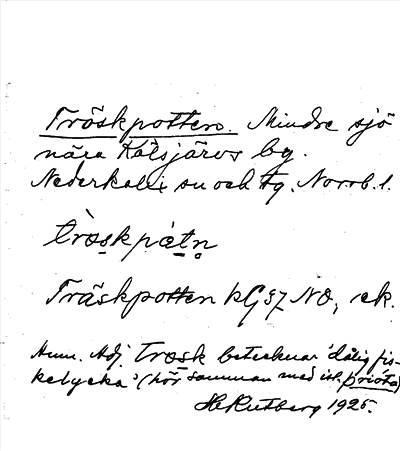 Tröskpotten. Mindre sjö
nära Kälsjärvs by.
Nederkalix sn och tg. Norrb. l.
tròskpɔ̀tn̥
Träskpotten kG 97 NO, ek.
Anm. Adj. trosk betecknar 'dålig fis-
kelycka' (hör samman med isl. þrióta)
H Rutberg 1925.